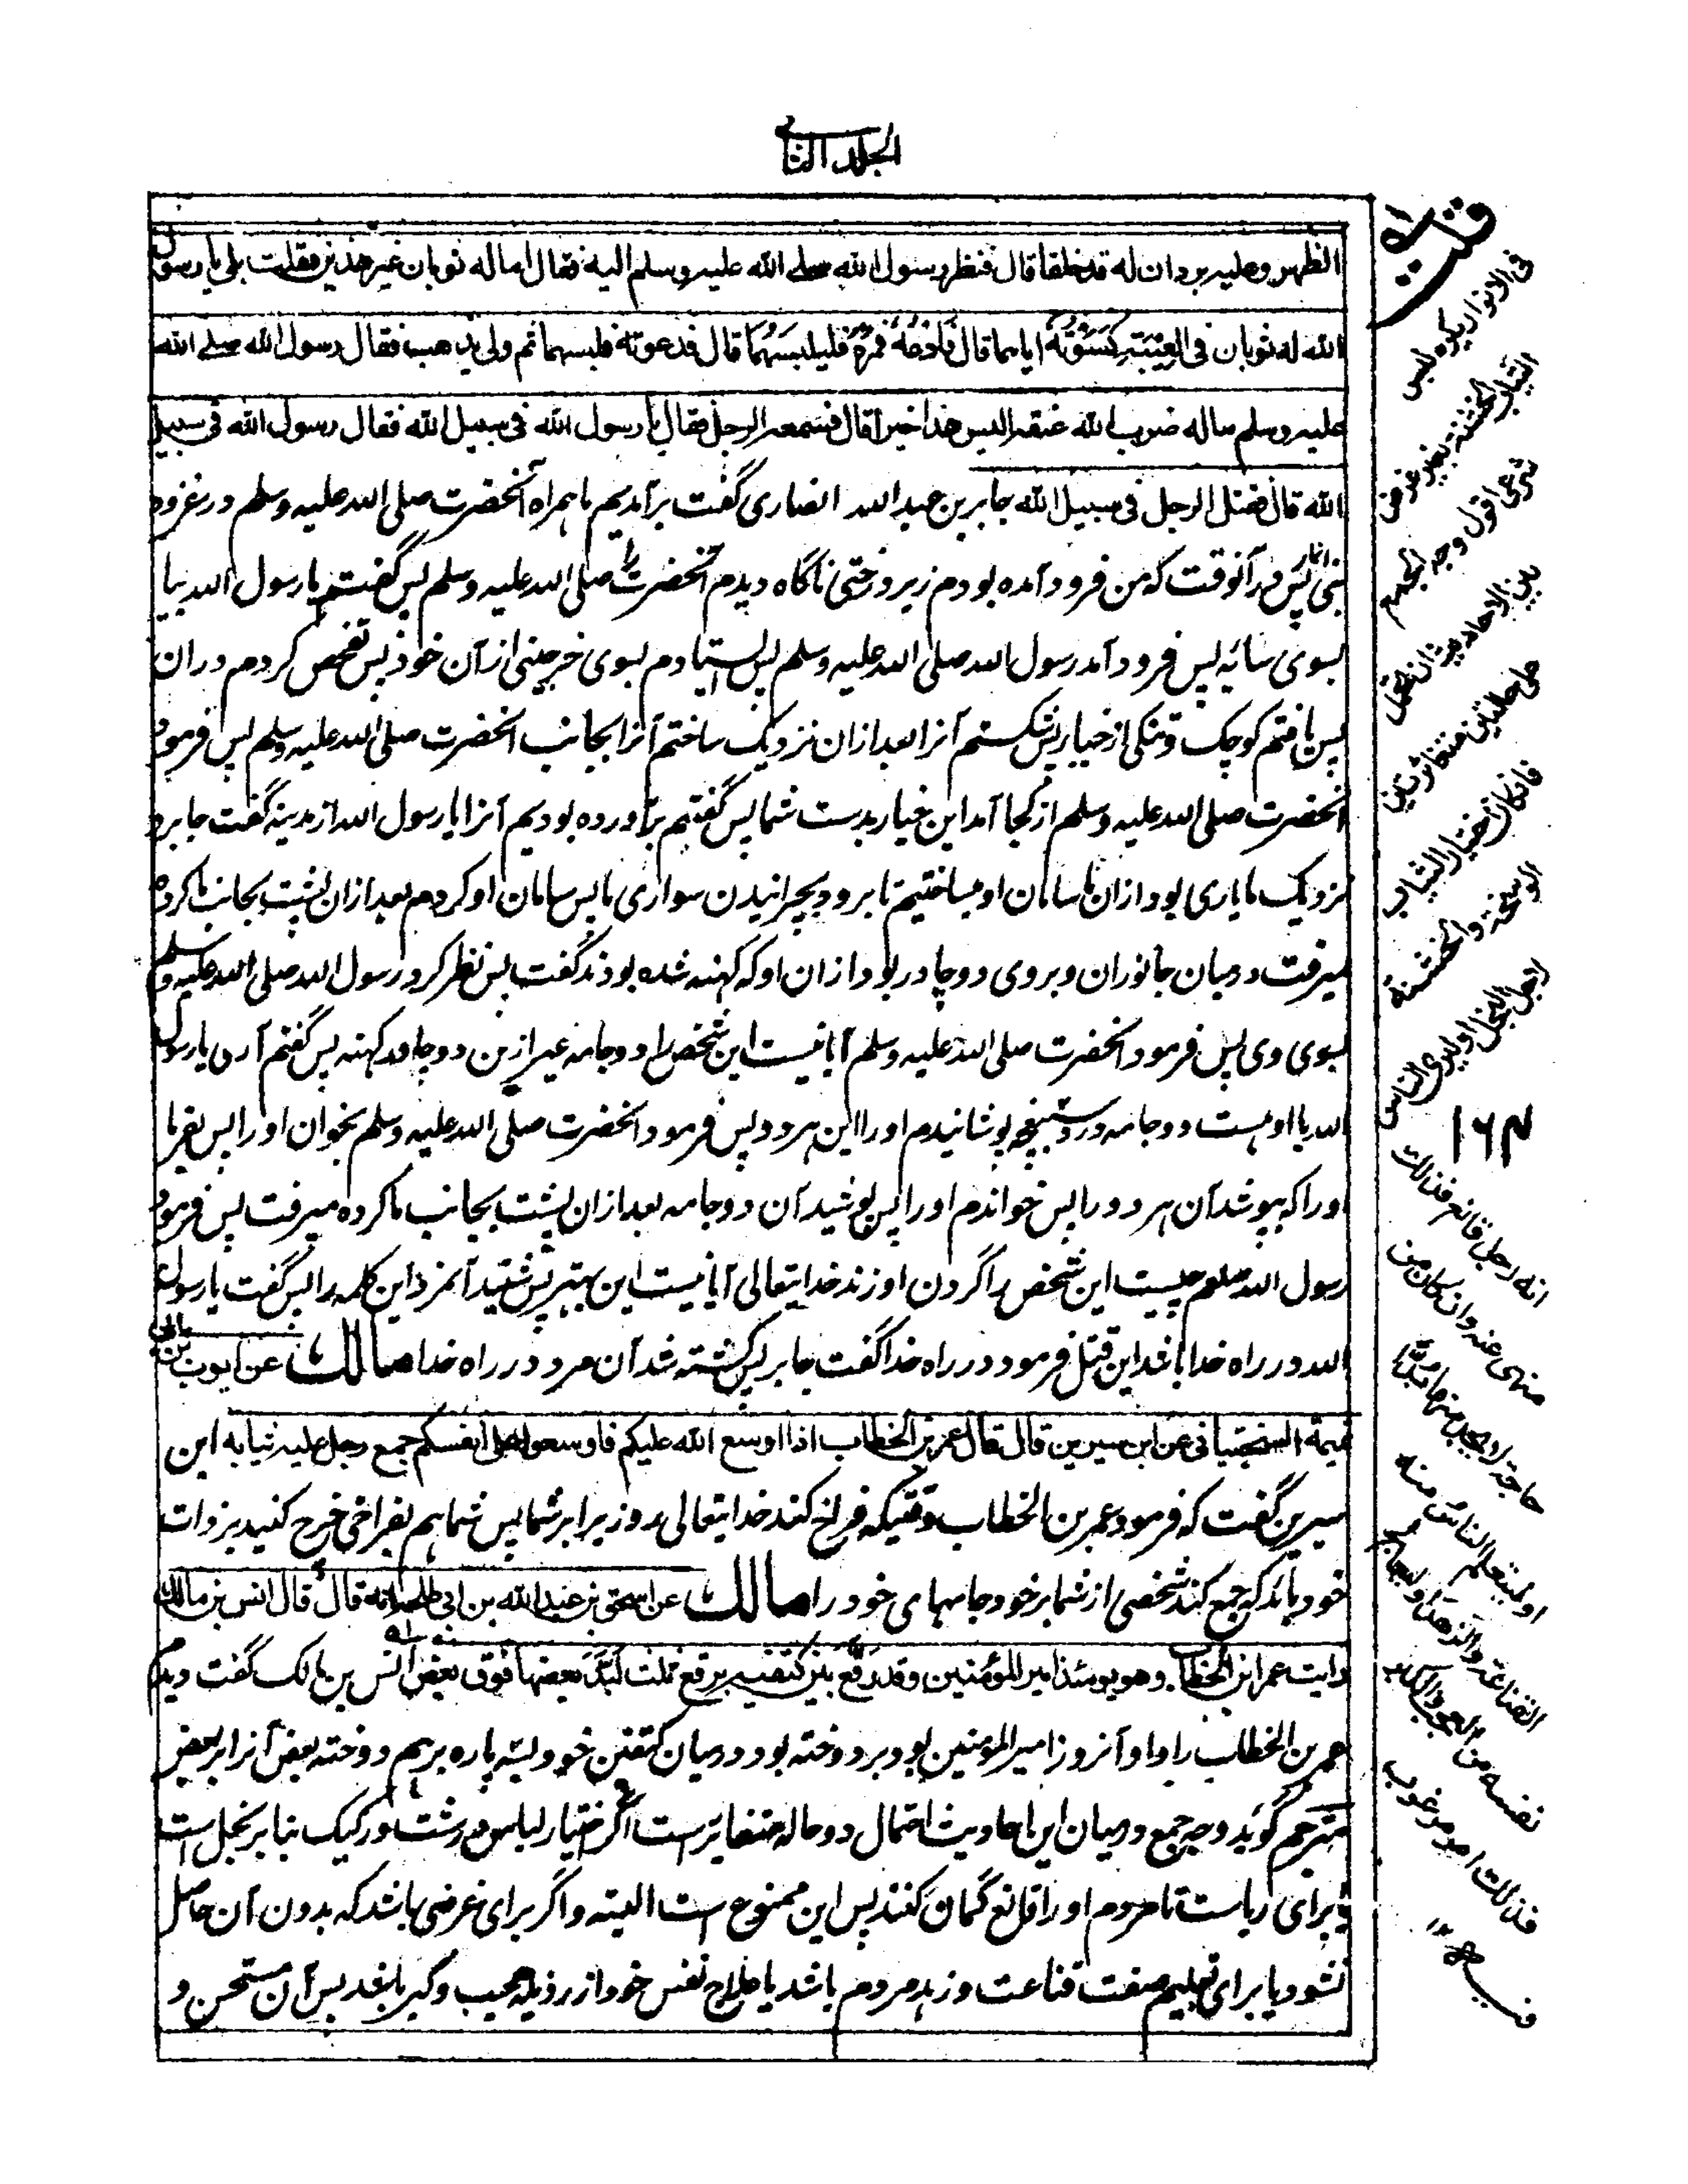 الجلد الثانی
الظهر وعليه بردان له قد خلقا قال فنظر رسول الله صلے الله عليه وسلم اليه فقال اما له ثوبان غير هذين فقلت بلی يا رسول
الله له ثوبان فی العيبة كسوته اياهما قال فادعه فمره فليلبسهما قال فدعوته فلبسهما ثم ولی يذهب فقال رسول الله صلے الله
عليه وسلم ماله ضرب الله عنقه اليس هذا خيرا قال فسمعه الرجل فقال يا رسول الله فی سبيل الله فقال رسول الله فی سبيل
الله قال فقتل الرجل فی سبيل الله جابر بن عبد الله انصاری گفت برآمدیم ما همراه آنحضرت صلی الله علیه وسلم در غزوه
بنی انمار پس در آنوقت که من فرود آمده بودم زیر درختی ناگاه دیدم آنحضرت را صلی الله علیه وسلم پس گفتم یا رسول الله بیا
بسوی سایه پس فرود آمد رسول الله صلی الله علیه وسلم پس ایستادم بسوی خرجینی از آن خود پس تفحص کردم دران
پس یافتم کوچک وتنکی از خیار پس شکستم آنرا بعد ازان نزدیک ساختم آنرا بجانب آنحضرت صلی الله علیه وسلم پس فرمود
آنحضرت صلی الله علیه وسلم از کجا آمد این خیار بدست شما پس گفتم برآورده بودیم آنرا یا رسول الله از مدینه گفت جابر و
نزدیک ما یاری بود ازان ما سامان او میساختیم تا برود بچرانیدن سواری ما پس سامان او کردم بعد ازان پشت بجانب ما کرده
میرفت در میان جانوران و بروی دو چادر بود ازان او که کهنه شده بودند گفت پس نظر کرد رسول الله صلی الله علیه وسلم
بسوی وی پس فرمود آنحضرت صلی الله علیه وسلم آیا نیست این شخص را دو جامه غیر ازین دو چادر کهنه پس گفتم آری یا رسول
الله یا او هست دو جامه در بغچه پوشانیدم او را این هر دو پس فرمود آنحضرت صلی الله علیه وسلم بخوان او را پس بفرما
او را که بپوشد آن هر دو را پس خواندم او را پس پوشید آن دو جامه بعد ازان پشت بجانب ما کرده میرفت پس فرمود
رسول الله صلعم چیست این شخص را گردن او زند خدایتعالی آیا نیست این بهتر پس شنید آنمرد این کلمه را پس گفت یا رسول
الله در راه خدا باشد این قتل فرمود در راه خدا گفت جابر پس کشته شد آن مرد در راه خدا مالك عن ايوب بن ابی
تميمة السختيانی عن ابن سيرين قال قال عمر بن الخطاب اذا اوسع الله عليكم فاوسعوا علی انفسكم جمع رجل عليه ثيابه ابن
سیرین گفت که فرمود عمر بن الخطاب وقتیکه فراخ کند خدایتعالی روزی را بر شما پس شما هم بفراخی خرج کنید بر ذات
خود باید که جمع کند شخصی از شما بر خود جامهای خود را مالك عن اسحق بن عبد الله بن ابی طلحة انه قال قال انس بن مالك
رايت عمر ابن الخطاب وهو يومئذ امير المؤمنين وقد رقع بين كتفيه برقع ثلث لبد بعضها فوق بعض انس بن مالک گفت دیدم
عمر بن الخطاب را و او آنروز امیر المؤمنین بود و بر دوخته بود در میان کتفین خود بسه پاره برهم دوخته بعض آنرا بر بعض
مترجم گوید وجه جمع در میان این احادیث احتمال دو حاله متغایر ست اگر اختیار لباس درشت و رکیک بنا بر بخل است
یا برای ریاست تا مردم او را قانع گمان کنند پس این ممنوع است البته و اگر برای غرضی باشد که بدون آن حاصل
نشود یا برای تعلیم صفت قناعت و زهد مردم باشد یا علاج نفس خود از رذیله عجب و کبر باشد پس آن مستحسن و
قلت
فی الانوار يكره لبس
الثياب الخشنة بغير غرض
شرعی اقول وجه الجمع
بين الاحاديث ان تحمل
علی حالتين متغائرتين
فان كان اختيار الثياب
الوسخة والخشنة
لاجل البخل او ليری الناس
١٦٤
انه رجل قانع فذلك
منهی عنه وان كان من
حاجة لا يجد منها بدا
او ليتعلم الناس منه
القناعة والزهد او ليعالج
نفسه من العجب والكبر
فذلك امر مرغوب
فيه ١٢